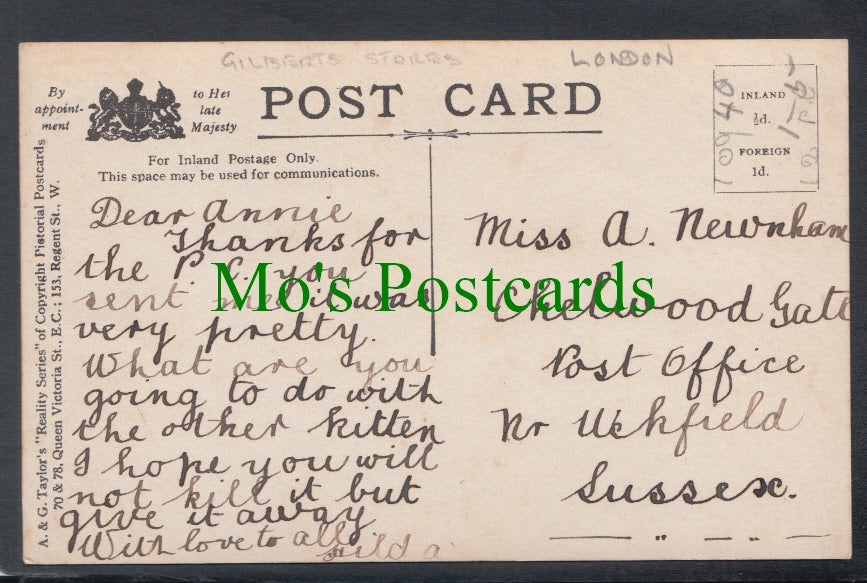 GILBERTS STORES LONDON
By appoint-ment
to Her late Majesty
POST CARD
For Inland Postage Only.
This space may be used for communications.
INLAND
½d.
FOREIGN
1d.
A. & G. Taylor's "Reality Series" of Copyright Pictorial Postcards
70 & 78, Queen Victoria St., E.C.; 153, Regent St., W.
Dear Annie
Thanks for
the P.C. you
sent me it was
very pretty.
What are you
going to do with
the other kitten
I hope you will
not kill it but
give it away
With love to all
Hilda
Miss A. Newnham
Chelwood Gate
Post Office
Nr Uckfield
Sussex.
Mo's Postcards